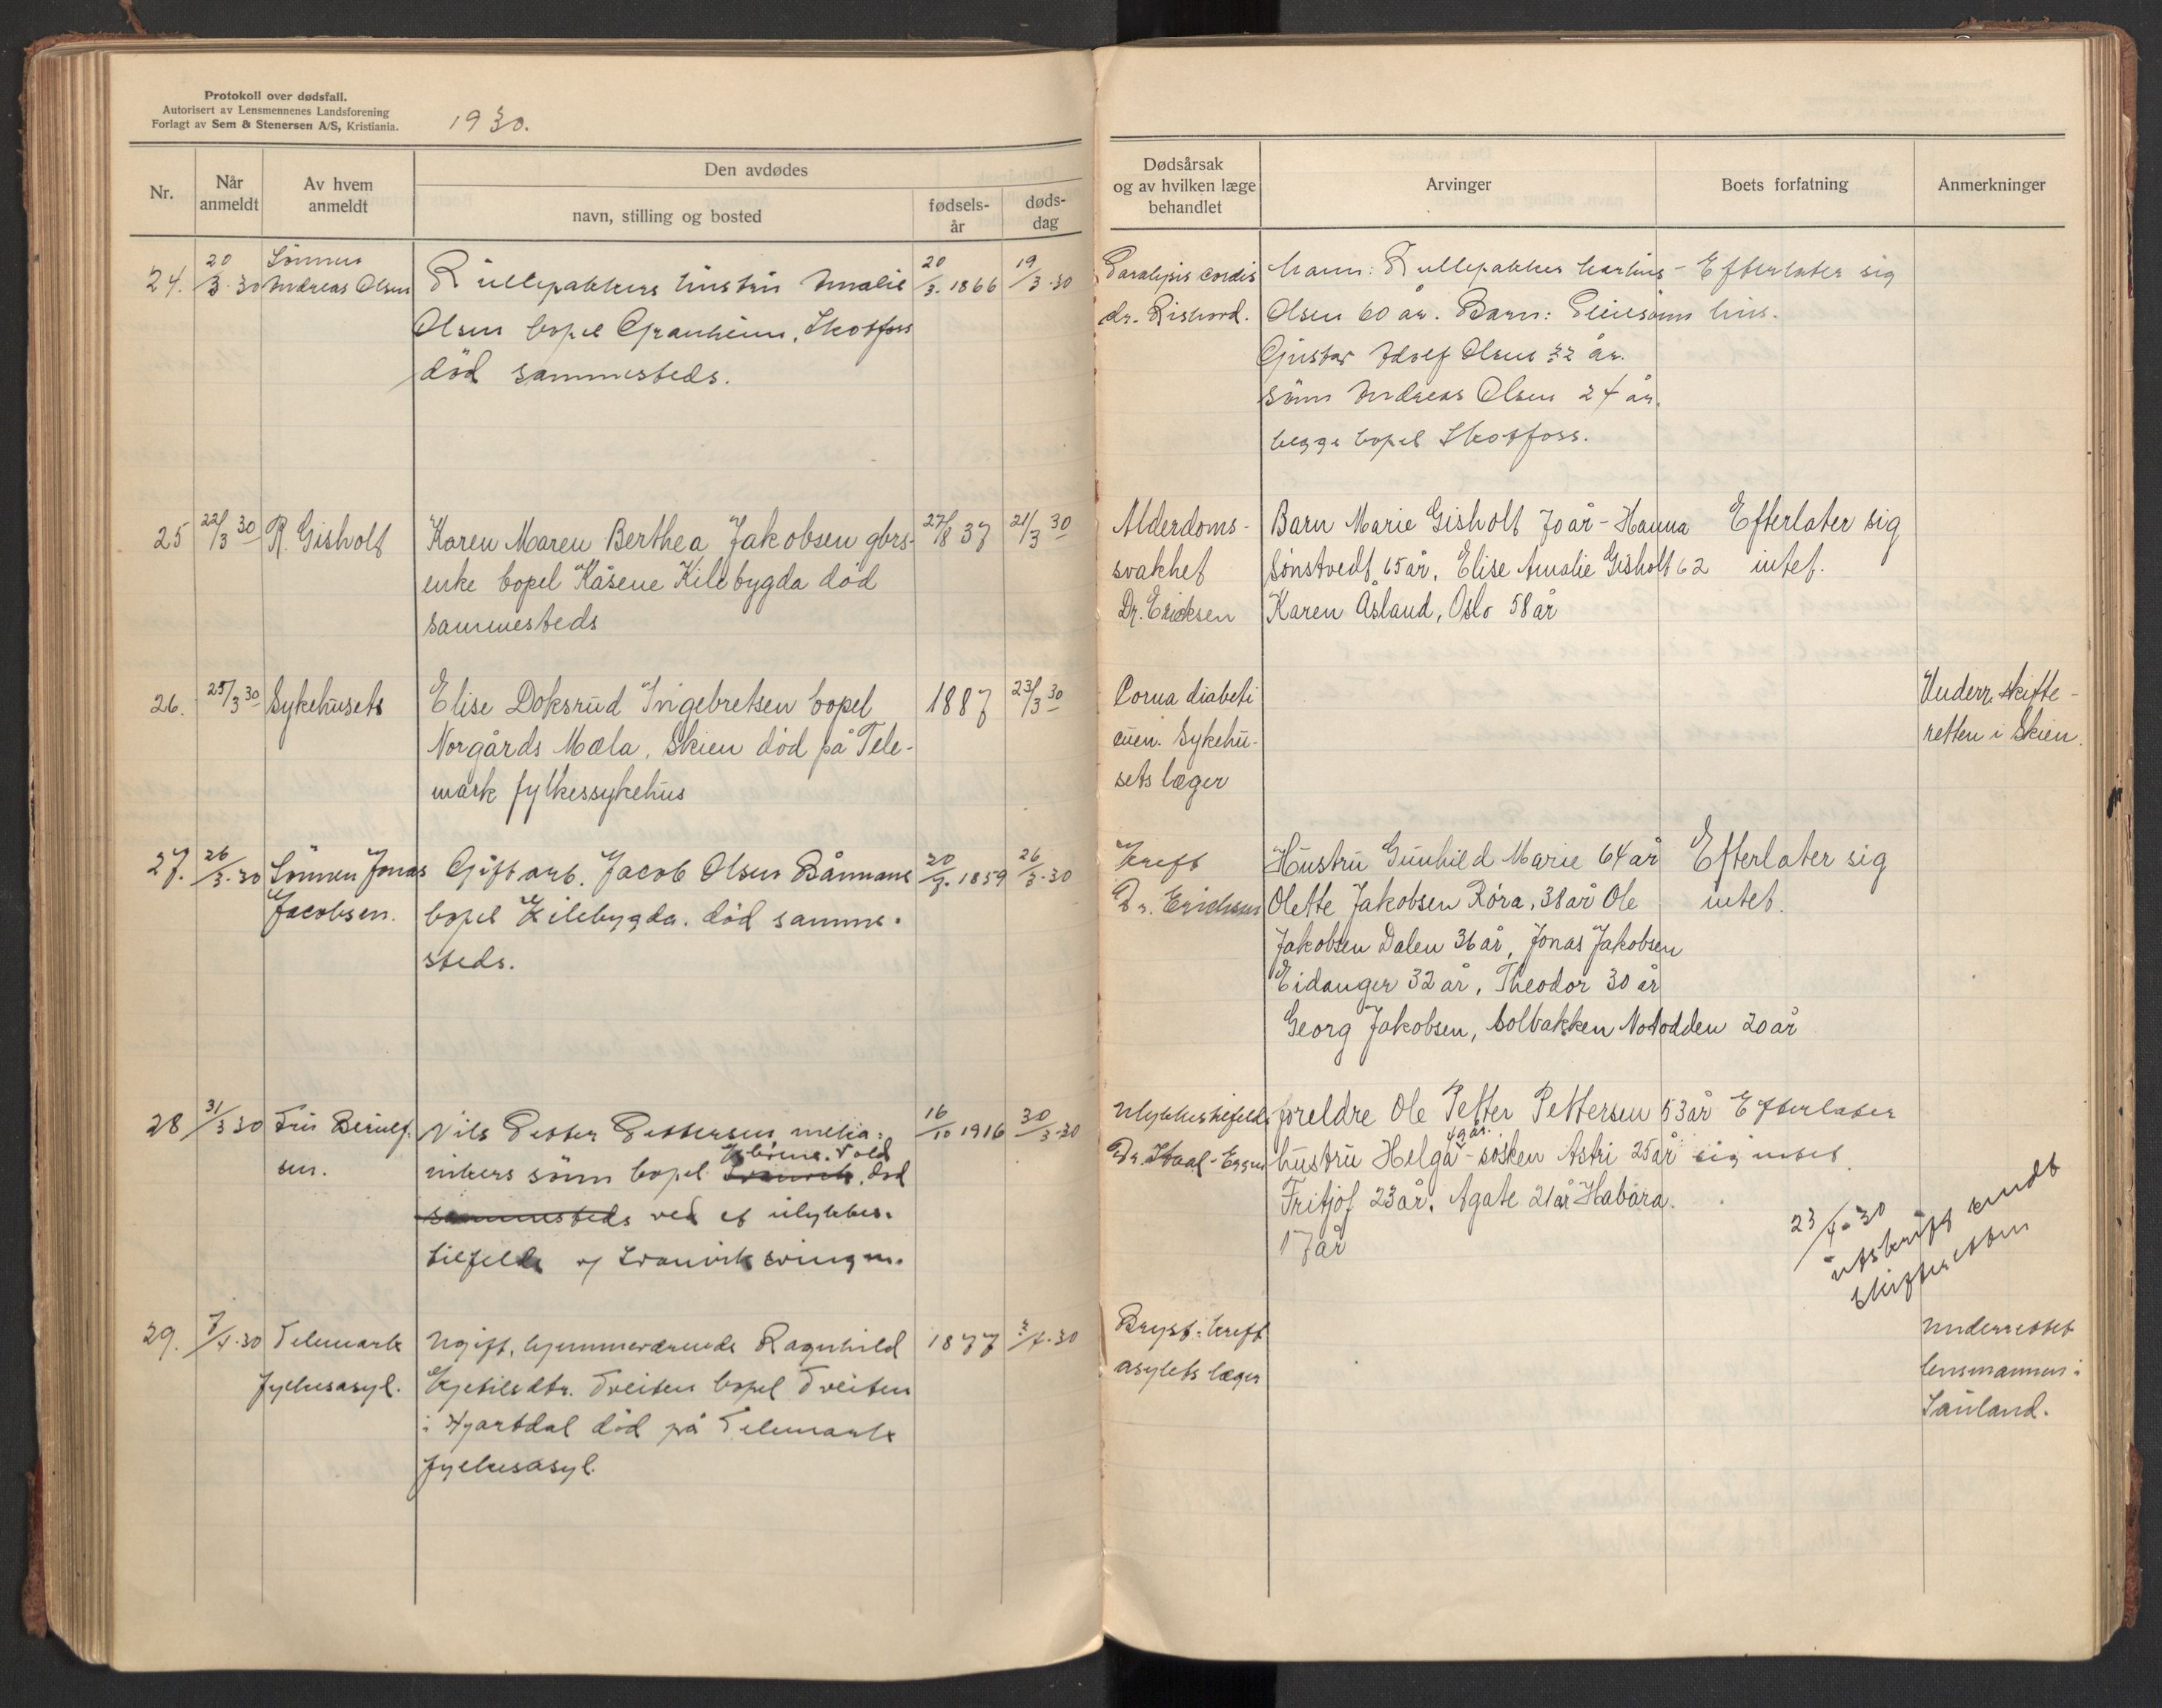 Protokoll over dødsfall.
Autorisert av Lensmennenes Landsforening
Forlagt av Sem & Stenersen A/S, Kristiania.
1930.
Nr.
Når anmeldt
Av hvem anmeldt
Den avdødes
navn, stilling og bosted
fødsels-år
døds-dag
Dødsårsak
og av hvilken læge
behandlet
Arvinger
Boets forfatning
Anmerkninger
24. 20/3.30 Sønnen Andreas Olsen
Rullepakkers hustru Amalie 20/3.1866 19/3.30
Olsen bopel Granheim, Skotfoss
død sammesteds.
Paralysis cordis
dr. Risnord.
Mann: Rullepakker Marius
Olsen 60 år. Barn:
Gustav Adolf Olsen 32 år.
sønn Andreas Olsen 24 år.
begge bopel Skotfoss.
Efterlater sig
25 22/3 30 R. Gisholt
Karen Maren Berthea Jakobsen gbrs- 27/8 37 21/3 30
enke bopel Kåsene Kilebygda død
sammesteds
Alderdoms-
svakhet
Dr. Ericksen
Barn Marie Gisholt 70 år - Hanna
Sønstvedt 65 år, Elise Amalie Gisholt 62
Karen Åsland, Oslo 58 år
Efterlater sig
intet.
26. 25/3 30 Sykehusets
Elise Doksrud Ingebretsen bopel 1887 23/3 30
Norgårds Mæla, Skien død på Tele-
mark fylkessykehus
Coma diabeti
cuen. Sykehu-
sets læger
Underr. skifte-
retten i Skien.
27. 26/3.30 Sønnen Jonas
Jacobsen.
Gift arb. Jacob Olsen Bånmane 20/7.1859 26/3.30
bopel Kilebygda. død samme-
steds.
Kreft
Dr. Ericksen
Hustru Gunhild Marie 64 år
Olette Jakobsen Røra, 38 år Ole
Jakobsen Dalen 36 år, Jonas Jakobsen
Eidanger 32 år, Theodor 30 år
Georg Jakobsen, Solbakken Notodden 20 år
Efterlater sig
intet.
28 31/3 30 Fru
sen.
Nils Petter Pettersen meka- 16/10 1916 30/3.30
nikers sønn bopel Vold død
sammesteds ved et ulykkes-
tilfelle
Ulykkestilfelde
Dr.
foreldre Ole Petter Pettersen 53 år
49 år.
hustru Helga - søsken Astri 25 år
Fritjof 23 år, Agate 21 år Habora
17 år
Efterlater
sig intet.
23/4.30
utskrift sendt
skifteretten
29. 7/4.30 Telemark
fylkesasyl.
Ugift, hjemmeværende Ragnhild 1877 3/4.30
Kjetilsdtr. Tveiten bopel Tveiten
i Hjartdal død på Telemark
fylkesasyl.
Bryst-kreft
asylets læger
Underrettet
lensmannen i
Sauland.